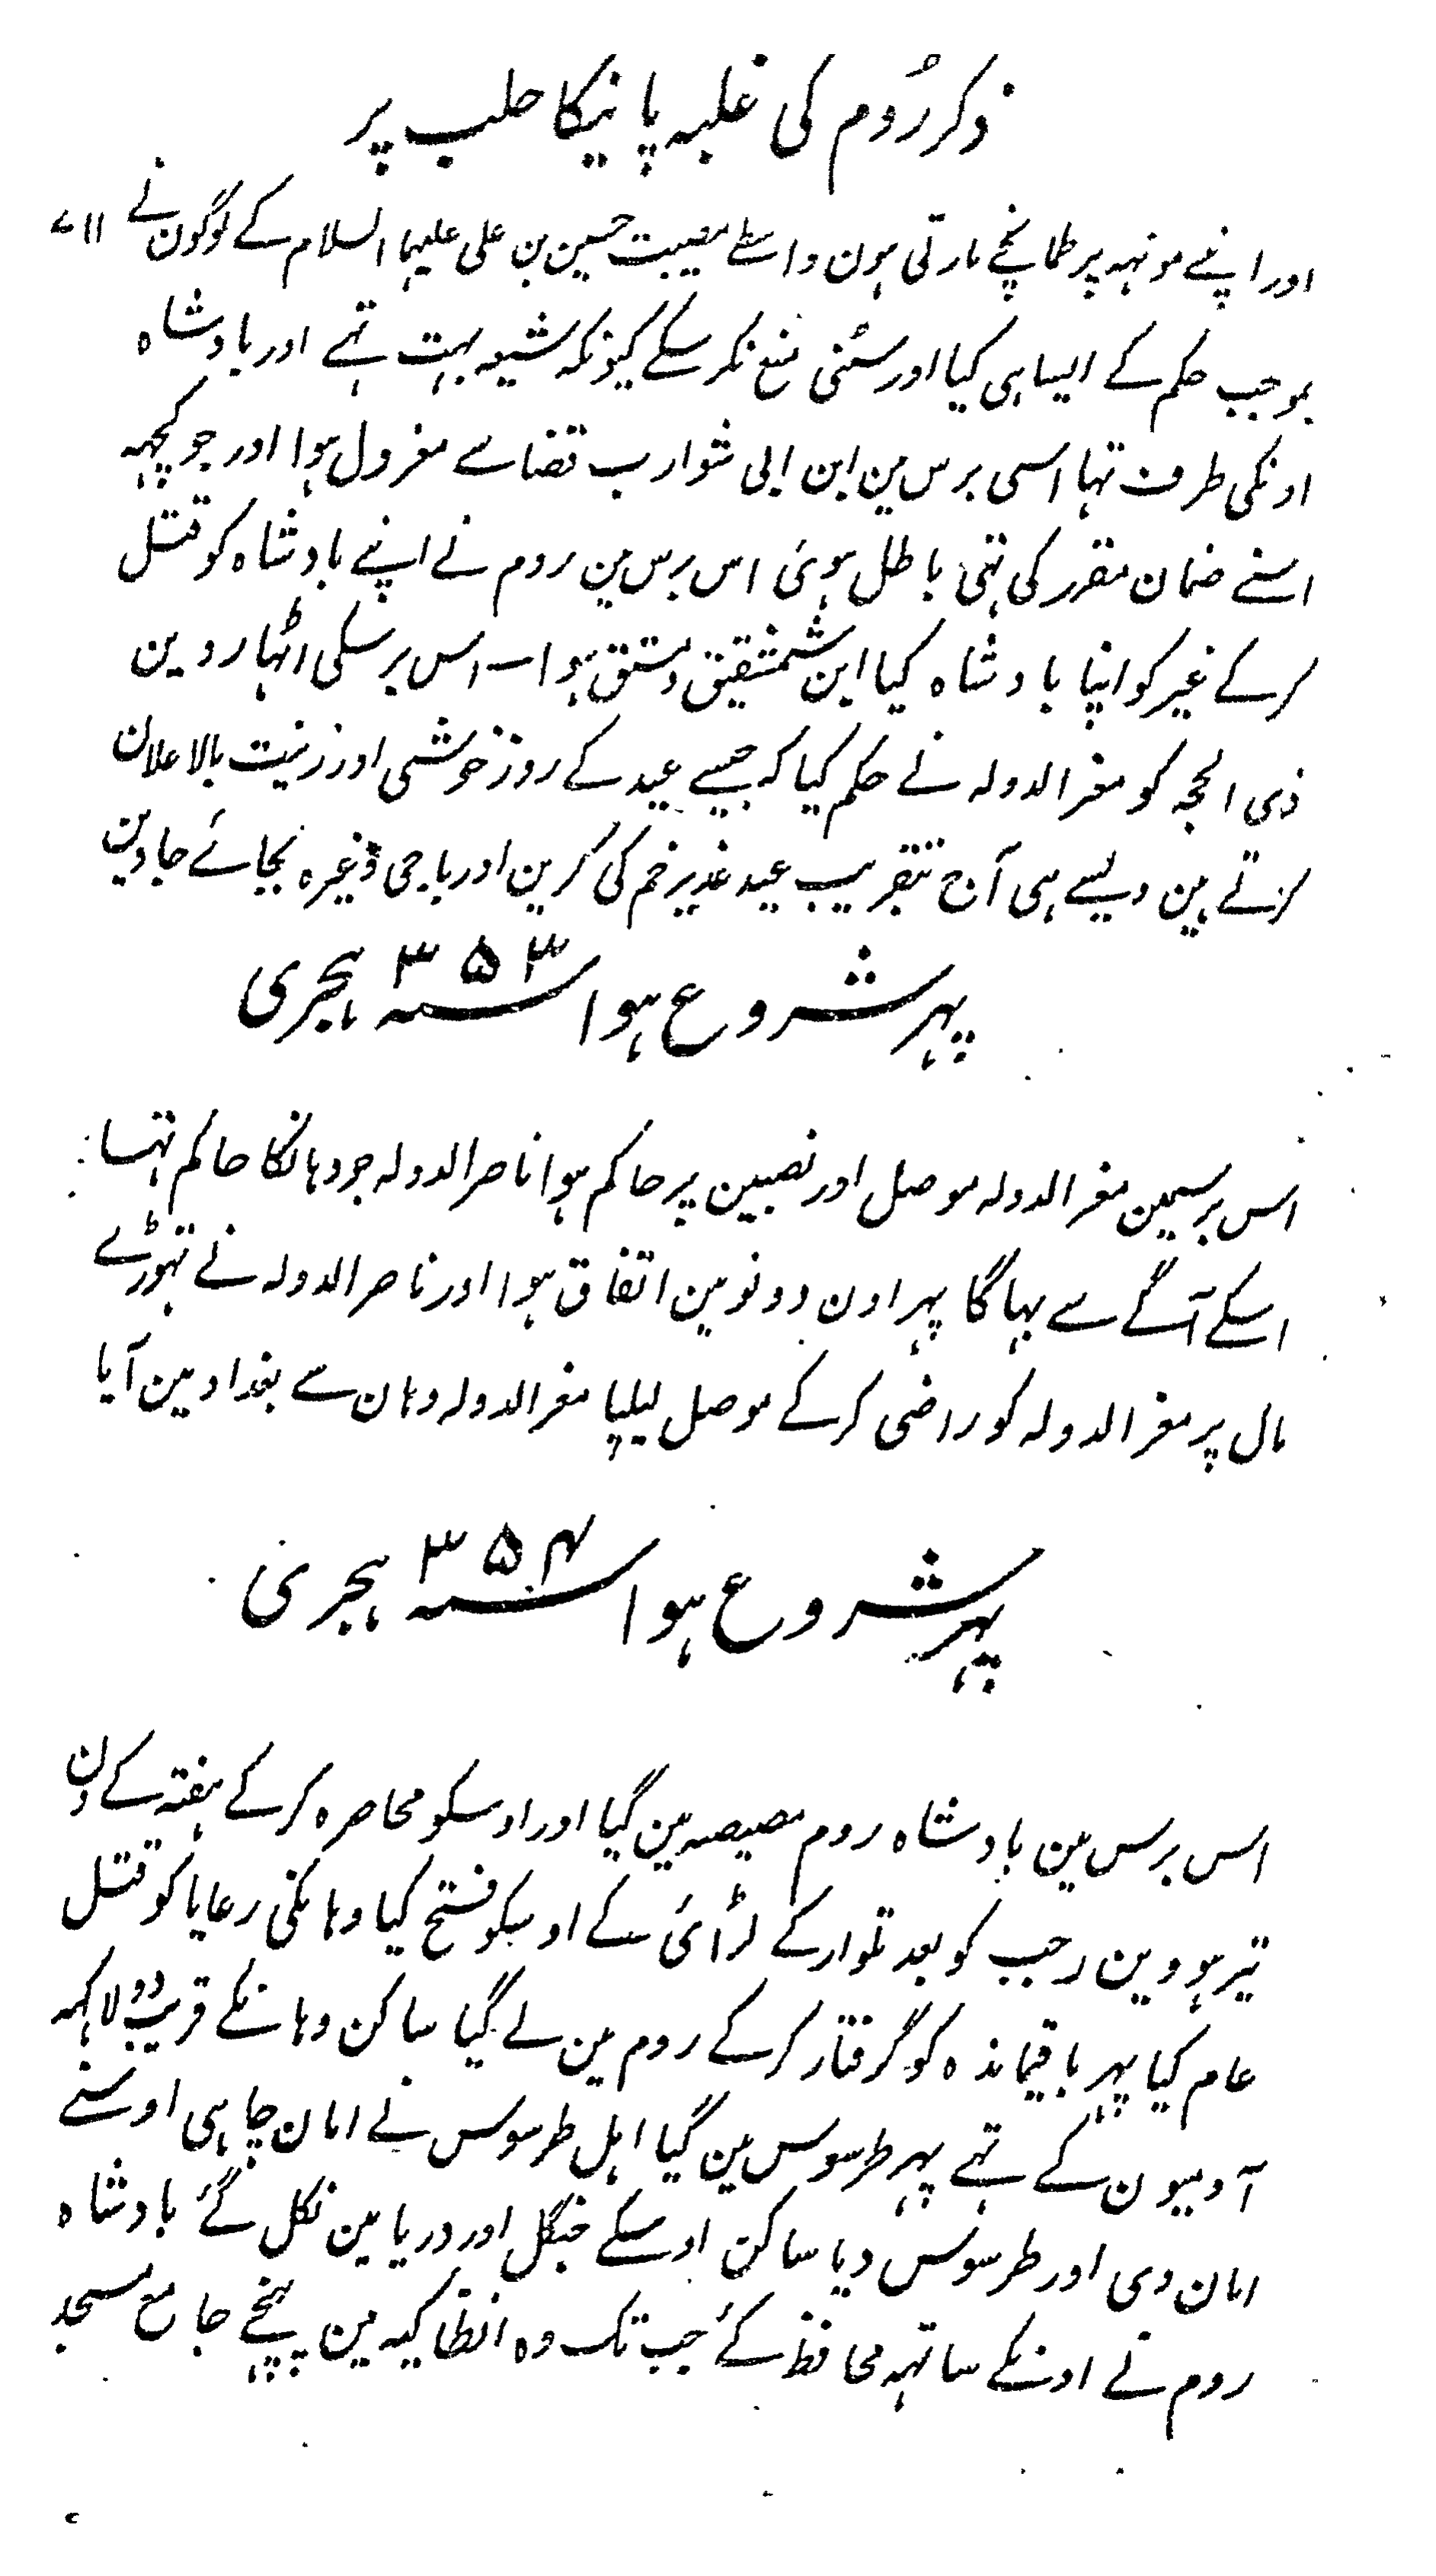 ذکر رُوم کی غلبہ پانیکا حلب پر
۷۱۱
اور اپنے مونہہ پر طمانچے مارتی ہون واسطے مصیبت حسین بن علی علیہما السلام کے لوگون نے
بموجب حکم کے ایسا ہی کیا اور سُنی منع نکر سکے کیونکہ شیعہ بہت تہے اور بادشاہ
اونکی طرف تہا اسی برس مین ابن ابی شوارب قضا سے معزول ہوا اور جو کچہہ
اسنے ضمان مقرر کی تہی باطل ہوئی اس برس مین روم نے اپنے بادشاہ کو قتل
کرکے غیر کو اپنا بادشاہ کیا ابن شمشقیق دمستق ہوا اس برسکی اٹہاروین
ذی الحجہ کو معز الدولہ نے حکم کیا کہ جیسے عید کے روز خوشی اور زینت بالاعلان
کرتے ہین ویسے ہی آج بتقریب عید غدیر خم کی کرین اور باجی وغیرہ بجائے جاوین
پہر شروع ہوا سنہ ۳۵۳ ہجری
اس برسمین معز الدولہ موصل اور نصیبین پر حاکم ہوا ناصر الدولہ جو وہانکا حاکم تہا
اسکے آگے سے بہاگا پہر اون دونو مین اتفاق ہوا اور ناصر الدولہ نے تہوڑے
مال پر معز الدولہ کو راضی کرکے موصل لیلیا معز الدولہ وہان سے بغداد مین آیا
پہر شروع ہوا سنہ ۳۵۴ ہجری
اس برس مین بادشاہ روم مصیصہ مین گیا اور اوسکو محاصرہ کرکے ہفتہ کے دن
تیرہووین رجب کو بعد تلوار کے لڑائی کے اوسکو فتح کیا وہانکی رعایا کو قتل
عام کیا پہر باقیماندہ کو گرفتار کرکے روم مین لے گیا ساکن وہانکے قریب دو لاکہہ
آدمیون کے تہے پہر طرسوس مین گیا اہل طرسوس نے امان چاہی اوسنے
امان دی اور طرسوس دیا ساکن اوسکے جنگل اور دریا مین نکل گئے بادشاہ
روم نے اونکے ساتہہ محافظ کئے جب تک وہ انطاکیہ مین پہنچے جامع مسجد